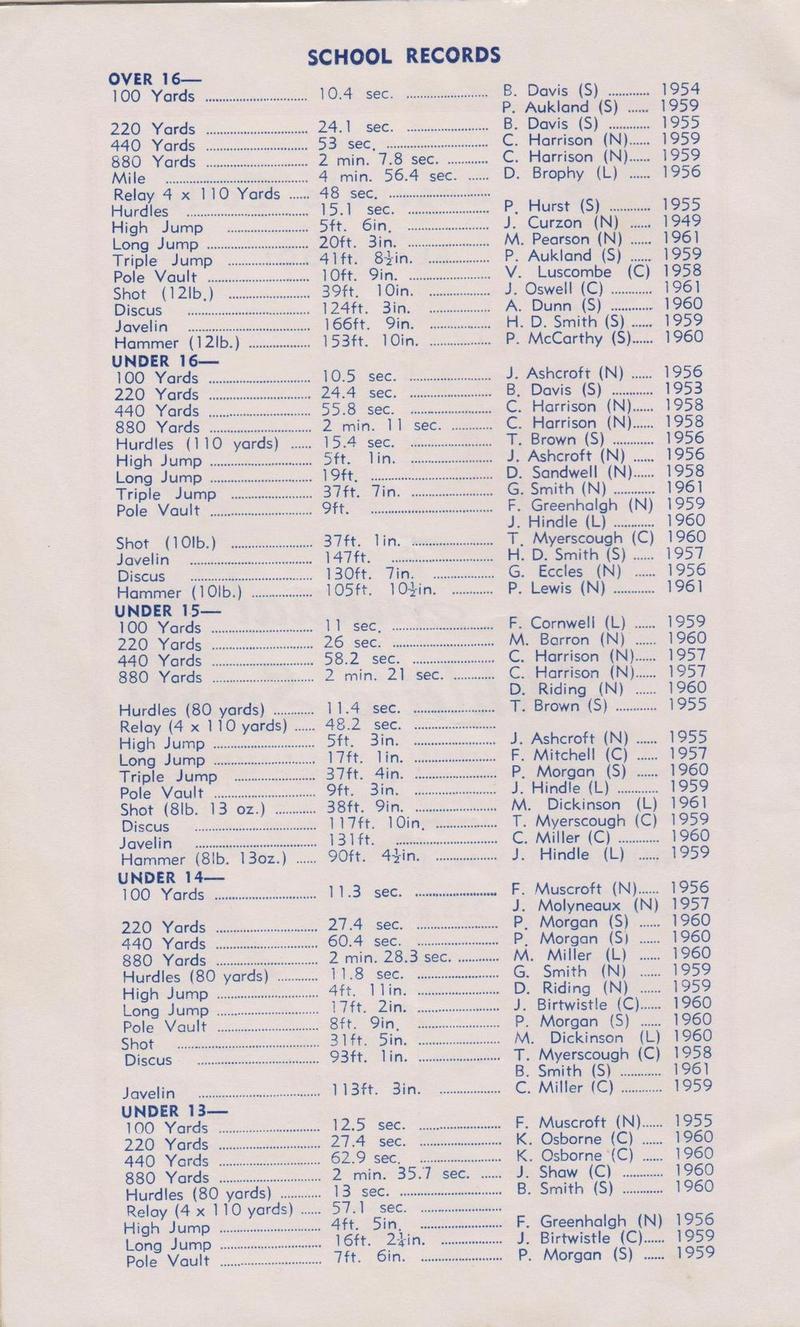 SCHOOL RECORDS
OVER 16—
100 Yards ............ 10.4 sec. ............ B. Davis (S) ............ 1954
P. Aukland (S) ...... 1959
220 Yards ............ 24.1 sec. ............ B. Davis (S) ............ 1955
440 Yards ............ 53 sec. ............ C. Harrison (N)...... 1959
880 Yards ............ 2 min. 7.8 sec. ............ C. Harrison (N)...... 1959
Mile ............ 4 min. 56.4 sec. ...... D. Brophy (L) ...... 1956
Relay 4 x 110 Yards ...... 48 sec. ............
Hurdles ............ 15.1 sec. ............ P. Hurst (S) ............ 1955
High Jump ............ 5ft. 6in. ............ J. Curzon (N) ...... 1949
Long Jump ............ 20ft. 3in. ............ M. Pearson (N) ...... 1961
Triple Jump ............ 41ft. 8½in. ............ P. Aukland (S) ...... 1959
Pole Vault ............ 10ft. 9in. ............ V. Luscombe (C) 1958
Shot (12lb.) ............ 39ft. 10in. ............ J. Oswell (C) ............ 1961
Discus ............ 124ft. 3in. ............ A. Dunn (S) ............ 1960
Javelin ............ 166ft. 9in. ............ H. D. Smith (S) ...... 1959
Hammer (12lb.) ............ 153ft. 10in. ............ P. McCarthy (S)...... 1960
UNDER 16—
100 Yards ............ 10.5 sec. ............ J. Ashcroft (N) ...... 1956
220 Yards ............ 24.4 sec. ............ B. Davis (S) ............ 1953
440 Yards ............ 55.8 sec. ............ C. Harrison (N)...... 1958
880 Yards ............ 2 min. 11 sec. ............ C. Harrison (N)...... 1958
Hurdles (110 yards) ...... 15.4 sec. ............ T. Brown (S) ............ 1956
High Jump ............ 5ft. 1in. ............ J. Ashcroft (N) ...... 1956
Long Jump ............ 19ft. ............ D. Sandwell (N)...... 1958
Triple Jump ............ 37ft. 7in. ............ G. Smith (N) ............ 1961
Pole Vault ............ 9ft. ............ F. Greenhalgh (N) 1959
J. Hindle (L) ............ 1960
Shot (10lb.) ............ 37ft. 1in. ............ T. Myerscough (C) 1960
Javelin ............ 147ft. ............ H. D. Smith (S) ...... 1957
Discus ............ 130ft. 7in. ............ G. Eccles (N) ...... 1956
Hammer (10lb.) ............ 105ft. 10½in. ............ P. Lewis (N) ............ 1961
UNDER 15—
100 Yards ............ 11 sec. ............ F. Cornwell (L) ...... 1959
220 Yards ............ 26 sec. ............ M. Barron (N) ...... 1960
440 Yards ............ 58.2 sec. ............ C. Harrison (N)...... 1957
880 Yards ............ 2 min. 21 sec. ............ C. Harrison (N)...... 1957
D. Riding (N) ...... 1960
Hurdles (80 yards) ............ 11.4 sec. ............ T. Brown (S) ............ 1955
Relay (4 x 110 yards) ...... 48.2 sec. ............
High Jump ............ 5ft. 3in. ............ J. Ashcroft (N) ...... 1955
Long Jump ............ 17ft. 1in. ............ F. Mitchell (C) ...... 1957
Triple Jump ............ 37ft. 4in. ............ P. Morgan (S) ...... 1960
Pole Vault ............ 9ft. 3in. ............ J. Hindle (L) ............ 1959
Shot (8lb. 13 oz.) ............ 38ft. 9in. ............ M. Dickinson (L) 1961
Discus ............ 117ft. 10in. ............ T. Myerscough (C) 1959
Javelin ............ 131ft. ............ C. Miller (C) ............ 1960
Hammer (8lb. 13oz.) ...... 90ft. 4½in. ............ J. Hindle (L) ...... 1959
UNDER 14—
100 Yards ............ 11.3 sec. ............ F. Muscroft (N)...... 1956
J. Molyneaux (N) 1957
220 Yards ............ 27.4 sec. ............ P. Morgan (S) ...... 1960
440 Yards ............ 60.4 sec. ............ P. Morgan (S) ...... 1960
880 Yards ............ 2 min. 28.3 sec. ............ M. Miller (L) ...... 1960
Hurdles (80 yards) ............ 11.8 sec. ............ G. Smith (N) ...... 1959
High Jump ............ 4ft. 11in. ............ D. Riding (N) ...... 1959
Long Jump ............ 17ft. 2in. ............ J. Birtwistle (C)...... 1960
Pole Vault ............ 8ft. 9in. ............ P. Morgan (S) ...... 1960
Shot ............ 31ft. 5in. ............ M. Dickinson (L) 1960
Discus ............ 93ft. 1in. ............ T. Myerscough (C) 1958
B. Smith (S) ............ 1961
Javelin ............ 113ft. 3in. ............ C. Miller (C) ............ 1959
UNDER 13—
100 Yards ............ 12.5 sec. ............ F. Muscroft (N)...... 1955
220 Yards ............ 27.4 sec. ............ K. Osborne (C) ...... 1960
440 Yards ............ 62.9 sec. ............ K. Osborne (C) ...... 1960
880 Yards ............ 2 min. 35.7 sec. ...... J. Shaw (C) ............ 1960
Hurdles (80 yards) ............ 13 sec. ............ B. Smith (S) ............ 1960
Relay (4 x 110 yards) ...... 57.1 sec. ............
High Jump ............ 4ft. 5in. ............ F. Greenhalgh (N) 1956
Long Jump ............ 16ft. 2¼in. ............ J. Birtwistle (C)...... 1959
Pole Vault ............ 7ft. 6in. ............ P. Morgan (S) ...... 1959